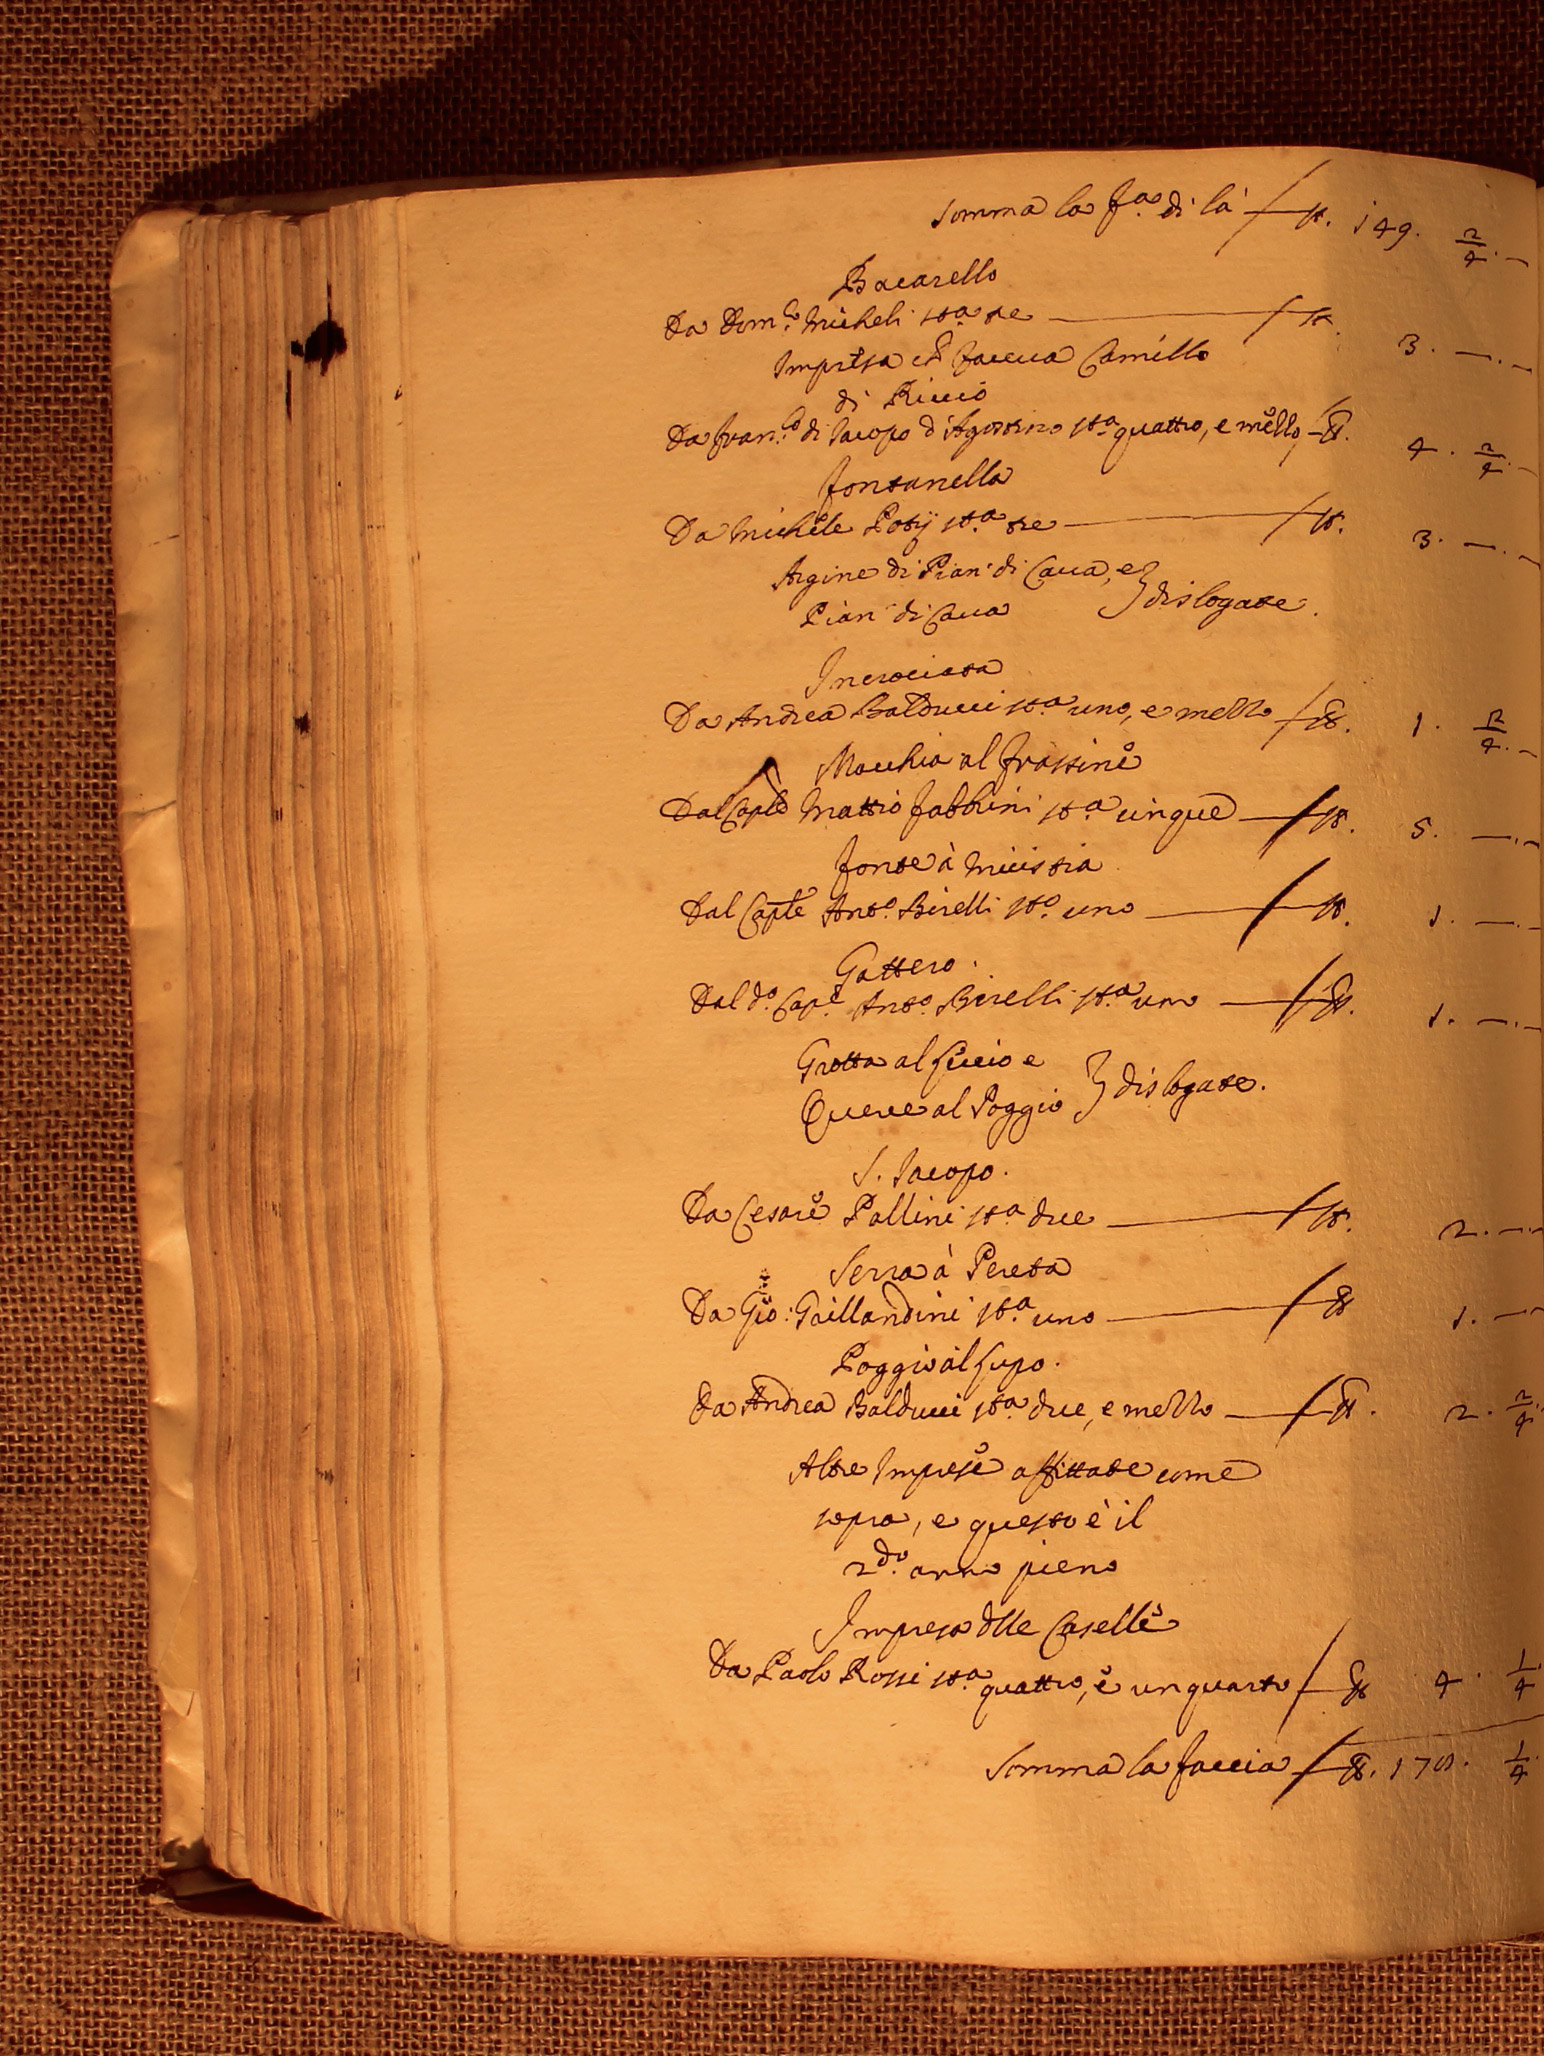 Somma la f.a di là — st. 149. 2/4. —
Bacarello
Da Dom.co Micheli sta. tre — st. 3. —. —
Impresa Camillo
di Riccio
Da Fran.co di Iacopo d'Agostino sta. quattro, e mezzo — st. 4. 2/4. —
Fontanella
Da Michele Potij sta. tre — st. 3. —. —
Argine di Pian di Cava, e
Pian di Cava } dislogate.
Incrociata
Da Andrea Balducci sta. uno, e mezzo — st. 1. 2/4. —
Macchia al Frassine
Dal Capte Mattio Fabbrini sta. cinque — st. 5. —. —
Fonte à
Dal Capte Anto. Birelli sto. uno — st. 1. —. —
Gattero.
Dal do. Cape. Anto. Birelli sta. uno — st. 1. —. —
Grotta al Leccio e
Querce al Poggio } dislogate.
S. Iacopo.
Da Cesare Pallini sta. due — st. 2. —. —
Serra à Pereta
Da Gio: Gaillandini sta. uno — st. 1. —
Poggio al Lupo.
Da Andrea Balducci sta. due, e mezzo — st. 2. 2/4.
Altre Imprese affittate come
sopra, e questo è il
2do. anno pieno
Impresa dlle Caselle
Da Paolo Rossi sta. quattro, e un quarto — st 4. 1/4
Somma la faccia — st. 178. 1/4.